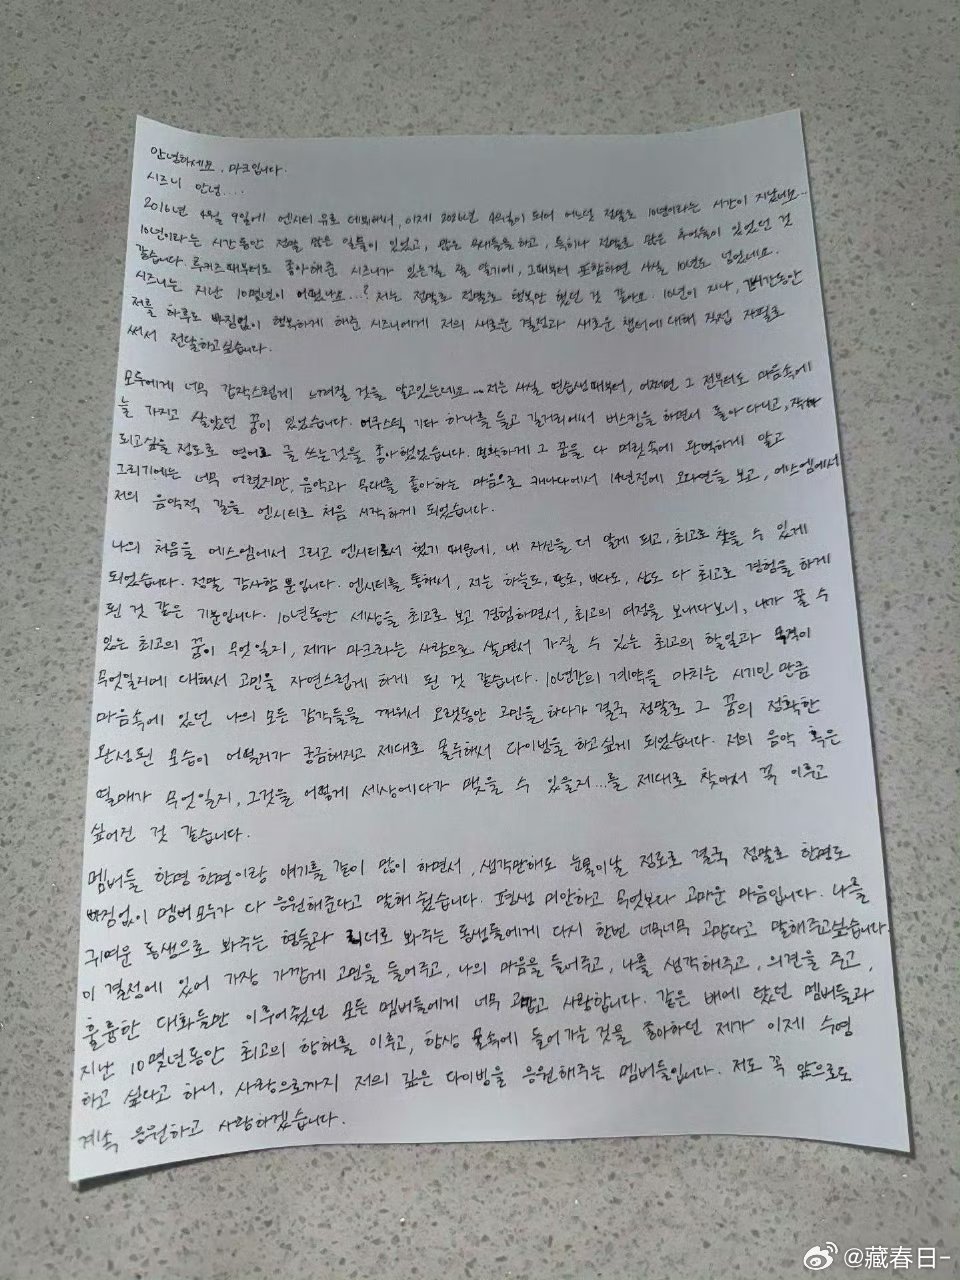 안녕하세요, 마크입니다.
시즈니 안녕....
2016년 4월 9일에 엔시티 유로 데뷔해서, 이제 2026년 4월이 되어 어느덧 정말로 10년이라는 시간이 지났네요..
10년이라는 시간동안 정말 많은 일들이 있었고, 많은 무대들을 하고, 특히나 정말로 많은 추억들이 있었던 것
같습니다. 루키즈때부터도 좋아해준 시즈니가 있는걸 잘 알기에, 그때부터 포함하면 사실 10년도 넘었네요.
시즈니는 지난 10몇년이 어땠나요...? 저는 정말로 정말로 행복만 했던 것 같아요. 10년이 지나, 긴시간동안
저를 하루도 빠짐없이 행복하게 해준 시즈니에게 저의 새로운 결정과 새로운 챕터에 대해 직접 자필로
써서 전달하고싶습니다.
모두에게 너무 갑작스럽게 느껴질 것을 알고있는데요... 저는 사실 연습생때부터, 어쩌면 그 전부터도 마음속에
늘 가지고 살았던 꿈이 있었습니다. 어쿠스틱 기타 하나를 들고 길거리에서 버스킹을 하면서 돌아다니고, 작가
되고싶을 정도로 영어로 글 쓰는것을 좋아했었습니다. 명확하게 그 꿈을 다 머릿속에 완벽하게 알고
그리기에는 너무 어렸지만, 음악과 무대를 좋아하는 마음으로 캐나다에서 14년전에 오디션을 보고, 에스엠에서
저의 음악적 길을 엔시티로 처음 시작하게 되었습니다.
나의 처음을 에스엠에서 그리고 엔시티로서 했기 때문에, 내 자신을 더 알게 되고, 최고로 찾을 수 있게
되었습니다. 정말 감사함 뿐입니다. 엔시티를 통해서, 저는 하늘도, 땅도, 바다도, 산도 다 최고로 경험을 하게
된 것 같은 기분입니다. 10년동안 세상을 최고로 보고 경험하면서, 최고의 여정을 보내다보니, 내가 꿀 수
있는 최고의 꿈이 무엇일지, 제가 마크라는 사람으로 살면서 가질 수 있는 최고의 할일과 목적이
무엇일지에 대해서 고민을 자연스럽게 하게 된 것 같습니다. 10년간의 계약을 마치는 시기인 만큼
마음속에 있던 나의 모든 감각들을 깨워서 오랫동안 고민을 하다가 결국 정말로 그 꿈의 정확한
완성된 모습이 어떨지가 궁금해지고 제대로 몰두해서 다이빙을 하고싶게 되었습니다. 저의 음악 혹은
열매가 무엇일지, 그것을 어떻게 세상에다가 맺을 수 있을지...를 제대로 찾아서 꼭 이루고
싶어진 것 같습니다.
멤버들 한명 한명이랑 얘기를 같이 많이 하면서, 생각만해도 눈물이날 정도로 결국 정말로 한명도
빠짐없이 멤버모두가 다 응원해준다고 말해줬습니다. 평생 미안하고 무엇보다 고마운 마음입니다. 나를
귀여운 동생으로 봐주는 형들과 리더로 봐주는 동생들에게 다시 한번 너무너무 고맙다고 말해주고싶습니다.
이 결정에 있어 가장 가깝게 고민을 들어주고, 나의 마음을 들어주고, 나를 생각해주고, 의견을 주고,
훌륭한 대화들만 이루어줬던 모든 멤버들에게 너무 고맙고 사랑합니다. 같은 배에 탔던 멤버들과
지난 10몇년동안 최고의 항해를 이루고, 항상 물속에 들어가는 것을 좋아하던 제가 이제 수영
하고 싶다고 하니, 사랑으로까지 저의 깊은 다이빙을 응원해주는 멤버들입니다. 저도 꼭 앞으로도
계속 응원하고 사랑하겠습니다.
@藏春日-